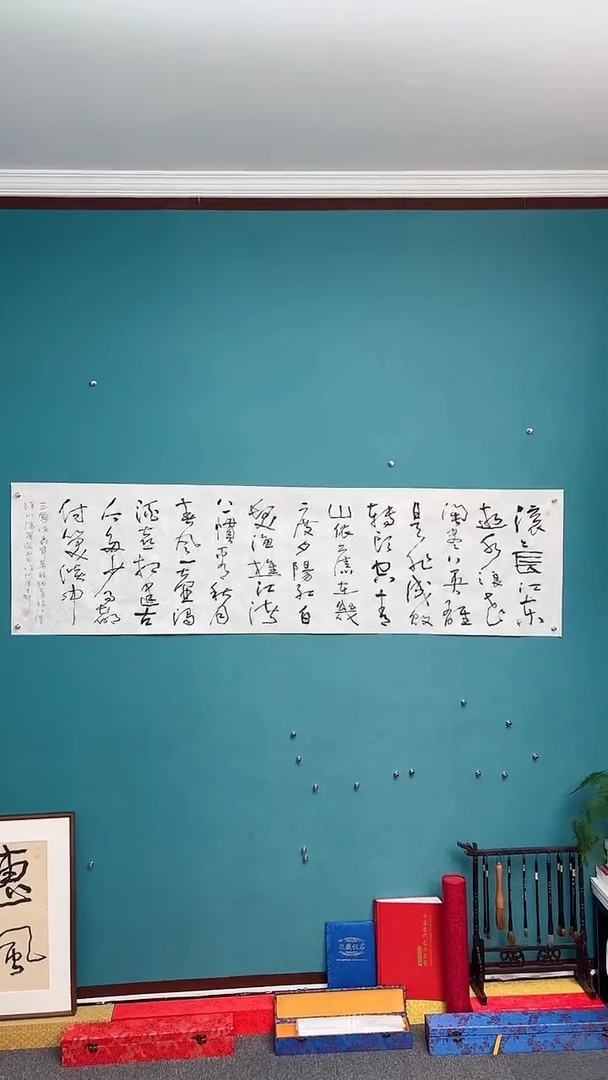 滚〻長江东
逝水浪花
淘尽英雄
是非成败
轉头空青
山依旧在幾
度夕陽红白
髮渔樵江渚
上惯看秋月
春风一壶浊
酒喜相逢古
今多少事都
付笑谈中
惠风
收藏证书